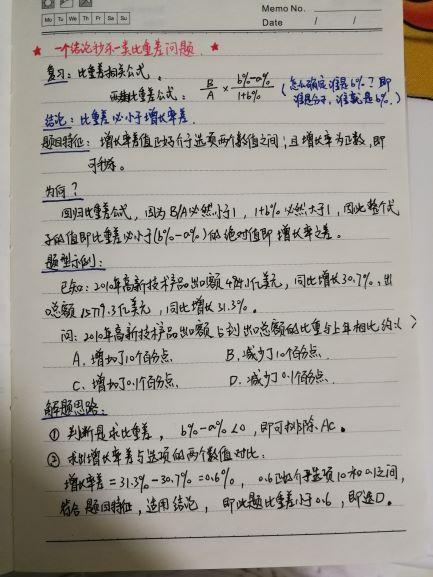 Memo No.
Mo Tu We Th Fr Sa Su
Date / /
★ 一个结论秒杀一类比重差问题 ★
复习：比重差相关公式。
两期比重差公式：B/A × (b%-a%)/(1+b%) (怎么确定谁是b%？即
谁是分子，谁就是b%。)
结论：比重差必小于增长率差.
题目特征：增长率差值正好介于选项两个数值之间，且增长率为正数，即
可秒杀。
为何？
回归比重差公式，因为B/A必然小于1，1+b%必然大于1，因此整个式
子的值即比重差必小于(b%-a%)的绝对值即增长率之差。
题型示例：
已知：2010年高新技术产品出口额 亿美元，同比增长30.7%，出
口总额15779.3亿美元，同比增长31.3%。
问：2010年高新技术产品出口额占到出口总额的比重与上年相比约( )
A. 增加了10个百分点. B. 减少了10个百分点.
C. 增加了0.1个百分点. D. 减少了0.1个百分点.
解题思路：
① 判断是求比重差，b%-a%<0，即可排除AC。
② 求出增长率差与选项的两个数值对比：
增长率差=31.3%-30.7%=0.6%，0.6正好介于选项10和0.1之间，
符合题目特征，适用结论，即此题比重差小于0.6，即选D。